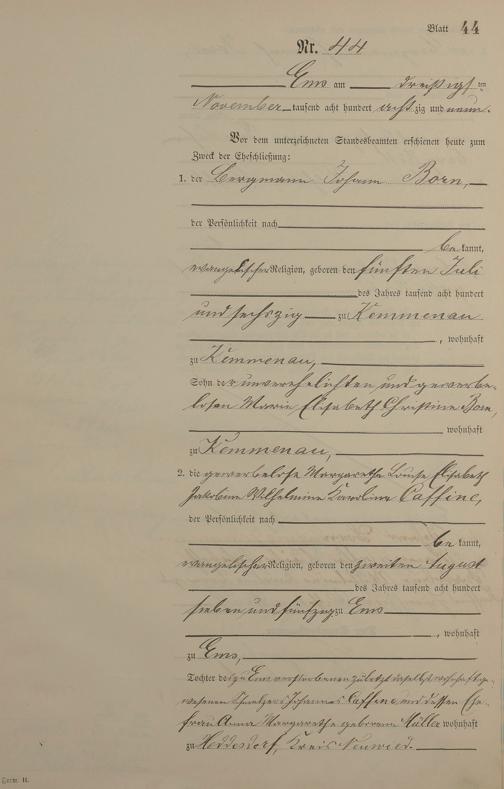 Blatt 44
Nr. 44
Ems am dreißigsten
November tausend acht hundert achtzig und neun.
Vor dem unterzeichneten Standesbeamten erschienen heute zum
Zweck der Eheschließung:
1. der Bergmann Johann Born,
der Persönlichkeit nach
bekannt,
evangelischer Religion, geboren den fünften Juli
des Jahres tausend acht hundert
und sechszig zu Kemmenau
, wohnhaft
zu Kemmenau,
Sohn der unverehelichten und gewerbe-
losen Marie Elisabeth Christine Born,
wohnhaft
zu Kemmenau,
2. die gewerbelose Margarethe Louise Elisabeth
Jakobine Wilhelmine Karoline Caffine,
der Persönlichkeit nach
bekannt,
evangelischer Religion, geboren den zweiten August
des Jahres tausend acht hundert
sieben und fünfzig zu Ems
, wohnhaft
zu Ems,
Tochter des zu Ems verstorbenen zuletzt daselbst wohnhaft ge-
wesenen Johannes Caffine und dessen Ehe-
frau Anna Margarethe geborenen Müller wohnhaft
zu Heddesdorf, Kreis Neuwied.
Form. B.